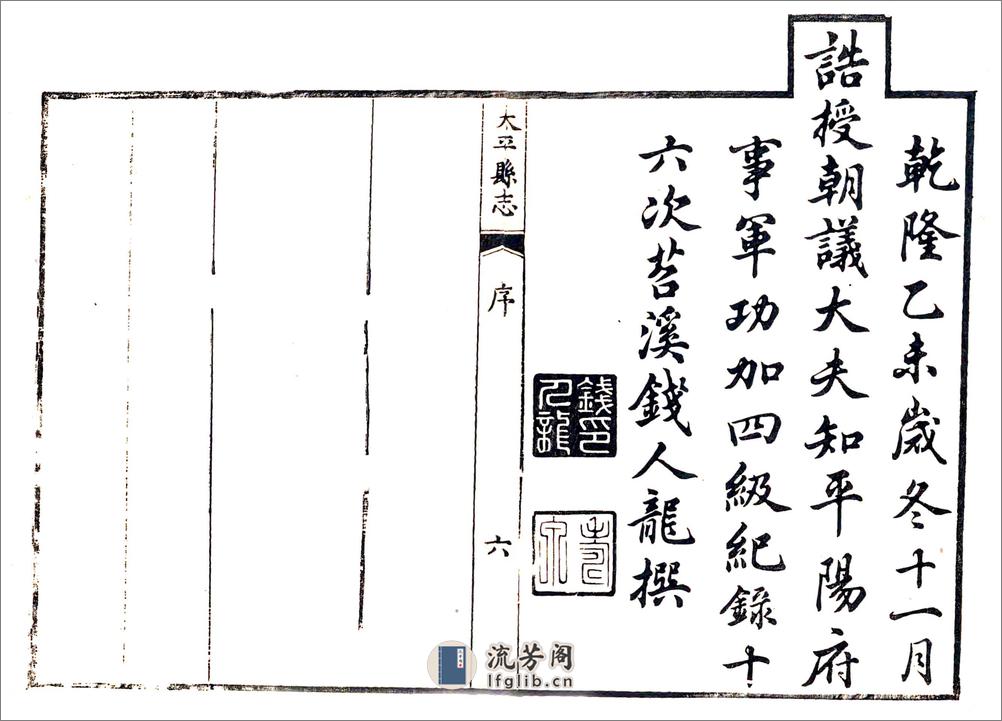 乾隆乙未歲冬十一月
誥授朝議大夫知平陽府
事軍功加四級紀錄十
六次苕溪錢人龍撰
錢印人龍
太平縣志
序
六
流芳阁
lfglib.cn